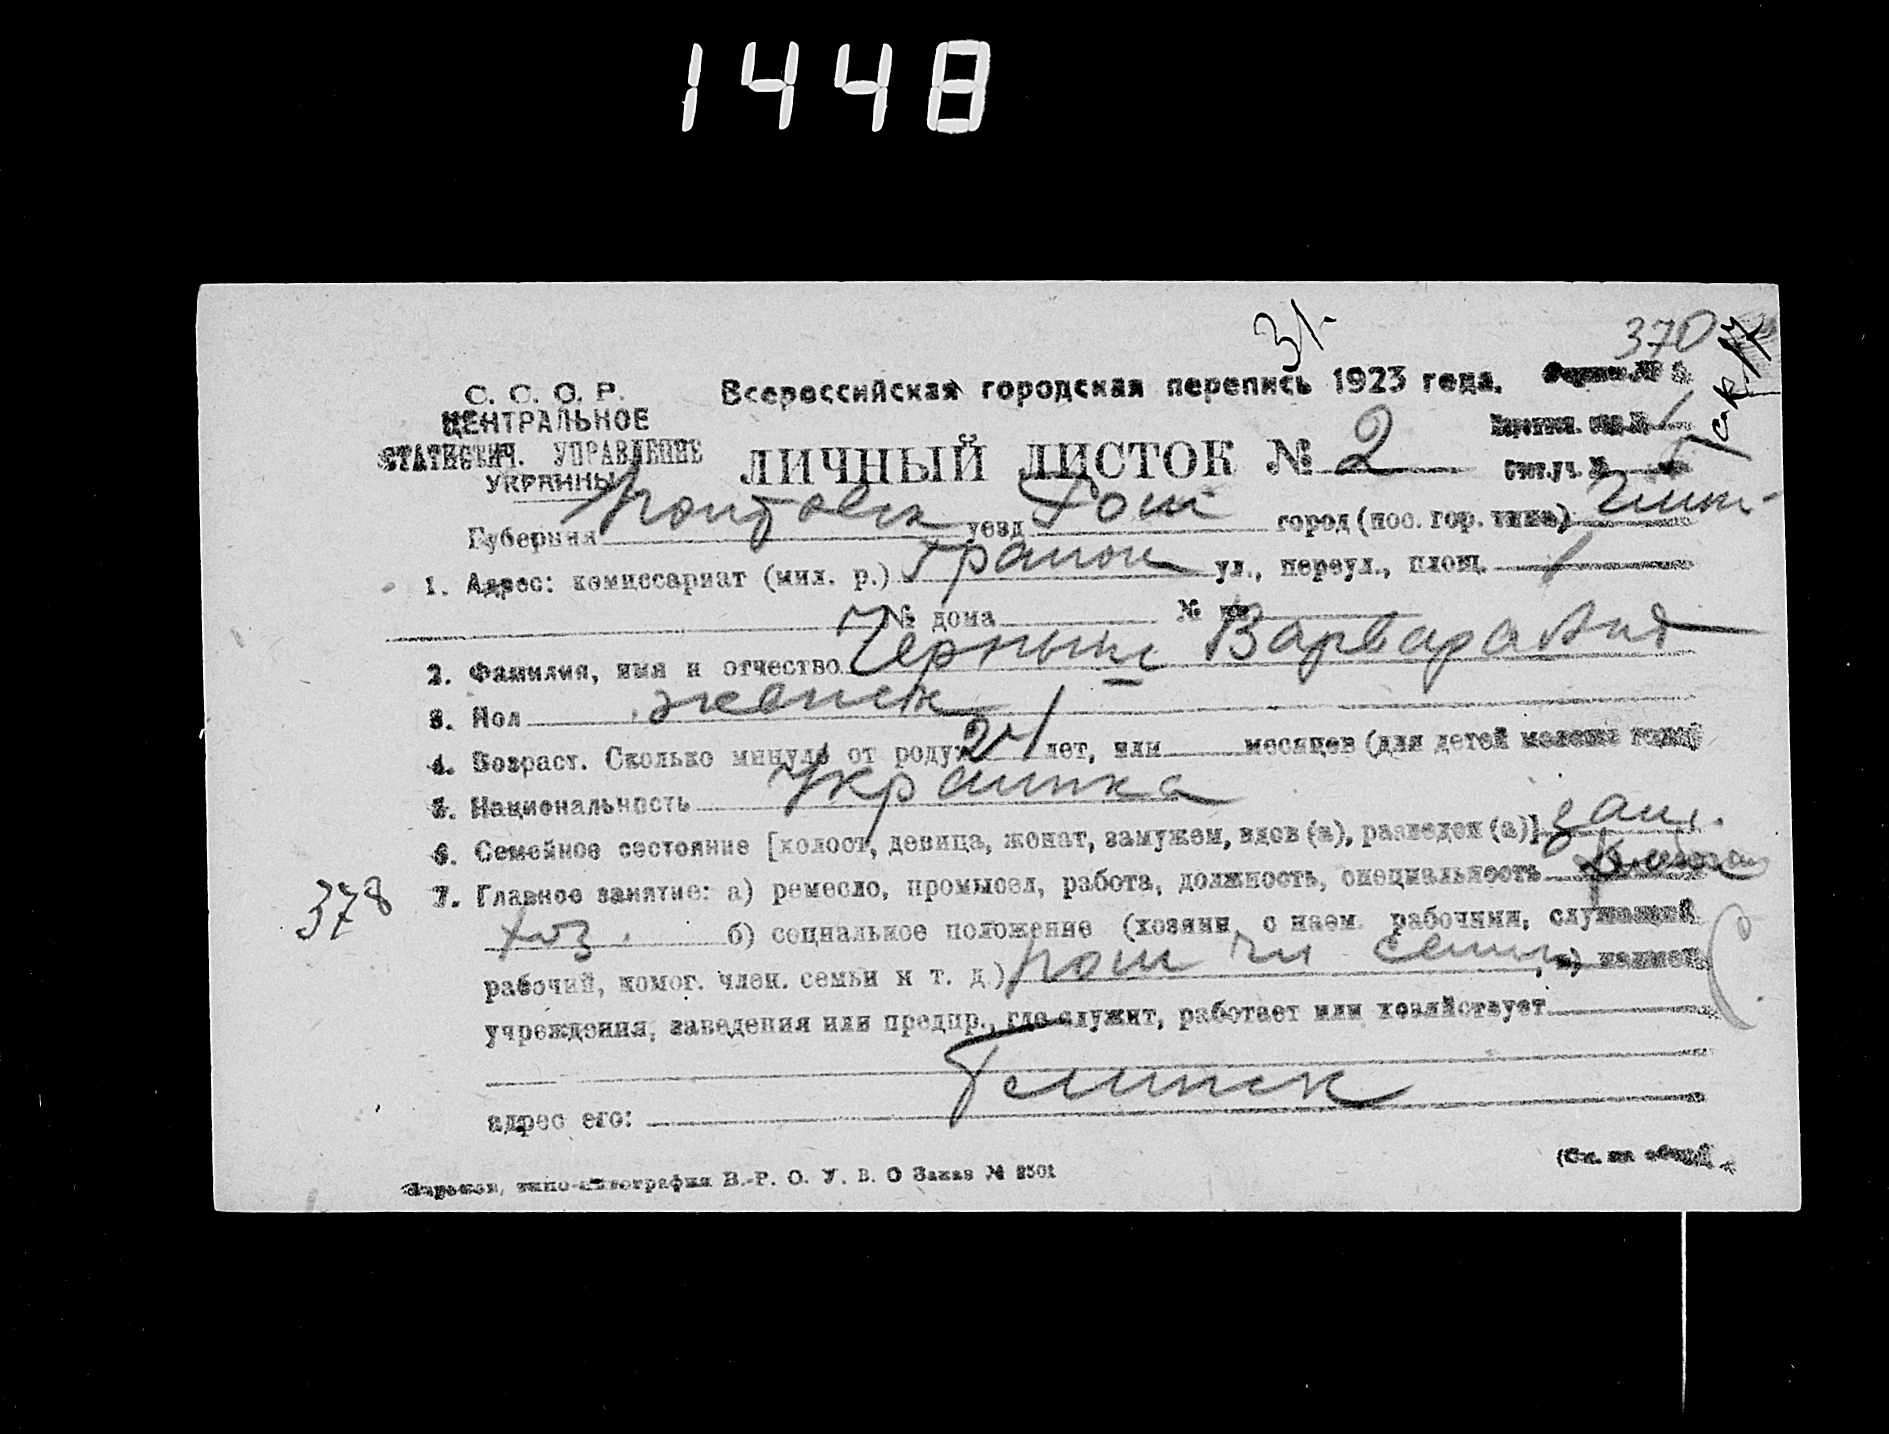 1448
31.
370
С. С. С. Р.
ЦЕНТРАЛЬНОЕ
СТАТИСТИЧ. УПРАВЛЕНИЕ
УКРАИНЫ
Всероссийская городская перепись 1923 года.
ЛИЧНЫЙ ЛИСТОК № 2
Счет.уч. №
Губерния Полтавск уезд город (пос. гор. типа)
1. Адрес: комиссариат (мил. р.) ул., переул., площ.
№ дома №
2. Фамилия, имя и отчество Черныш Варвара Анд
3. Пол женск
4. Возраст. Сколько минуло от роду: 24 лет, или месяцев (для детей моложе года)
5. Национальность Украинка
6. Семейное состояние [холост, девица, женат, замужем, вдов (а), разведен (а)] зам.
7. Главное занятие: а) ремесло, промысел, работа, должность, специальность
378
хоз. б) социальное положение (хозяин с наем. рабочими, служащий
рабочий, помог. член. семьи и т. д.) пом чл семьи, в) наимен.
учреждения, заведения или предпр., где служит, работает или хозяйствует
адрес его:
В.-Р. О. У. В. О Заказ № 2501
(См. на обор.)